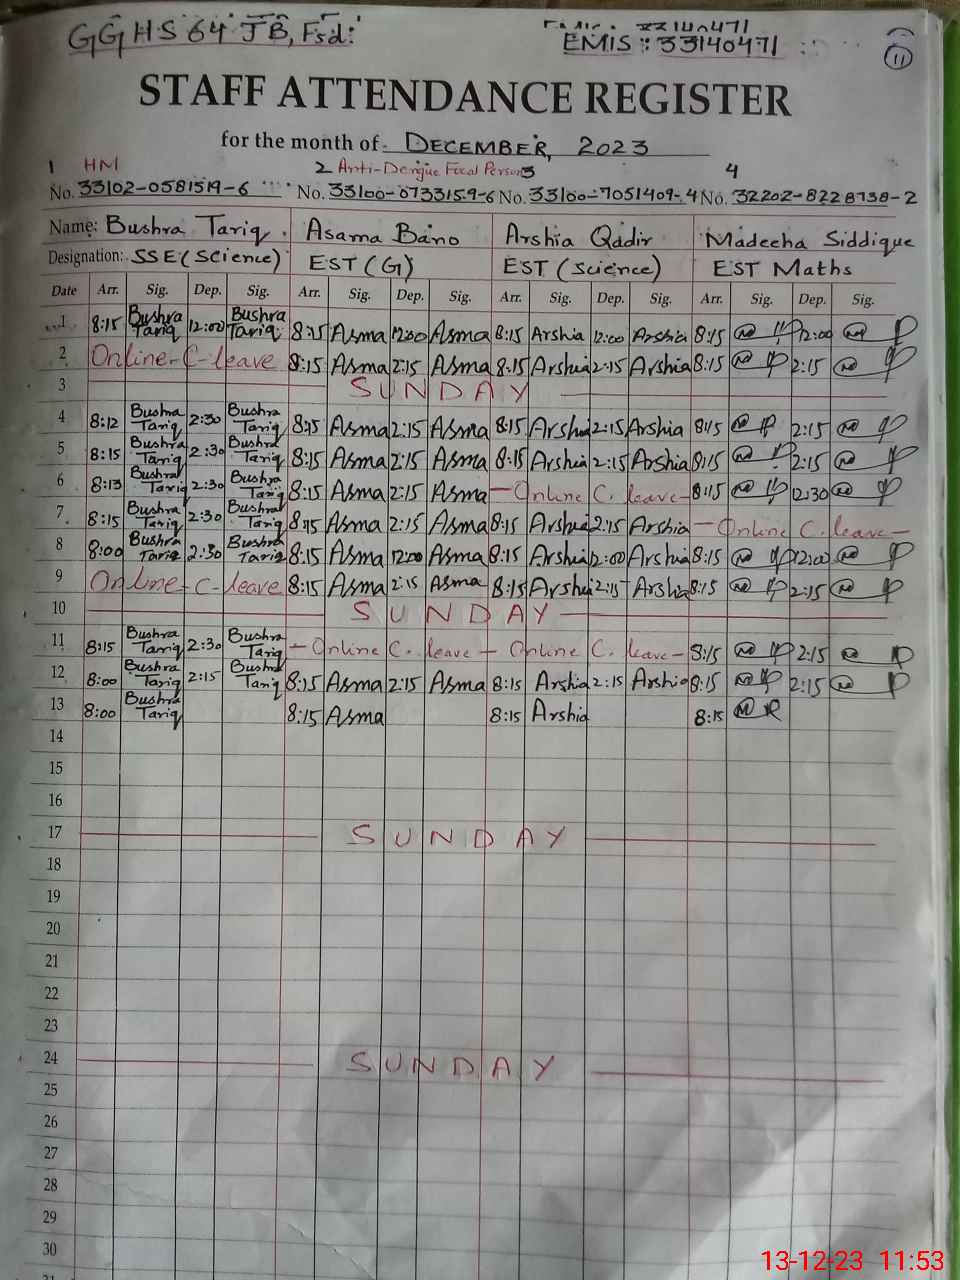 GGHS 64 JB, Fsd.
EMIS : 33140471
11
STAFF ATTENDANCE REGISTER
for the month of DECEMBER, 2023
1 HM 2 Anti-Dengue Focal Person 3 4
No. 33102-0581519-6 No. 33100-0733159-6 No. 33100-7051409-4 No. 32202-8228738-2
Name: Bushra Tariq. Asama Bano Arshia Qadir Madeeha Siddique
Designation: SSE (Science) EST (G) EST (science) EST Maths
Date Arr. Sig. Dep. Sig. Arr. Sig. Dep. Sig. Arr. Sig. Dep. Sig. Arr. Sig. Dep. Sig.
1 8:15 Bushra Tariq 12:00 Bushra Tariq 8:15 Asma 12:00 Asma 8:15 Arshia 12:00 Arshia 8:15 12:00
2 Online-C-leave 8:15 Asma 2:15 Asma 8:15 Arshia 2:15 Arshia 8:15 2:15
3 SUNDAY
4 8:12 Bushra Tariq 2:30 Bushra Tariq 8:15 Asma 2:15 Asma 8:15 Arshia 2:15 Arshia 8:15 2:15
5 8:15 Bushra Tariq 2:30 Bushra Tariq 8:15 Asma 2:15 Asma 8:15 Arshia 2:15 Arshia 8:15 2:15
6 8:13 Bushra Tariq 2:30 Bushra Tariq 8:15 Asma 2:15 Asma - Online C. leave - 8:15 12:30
7 8:15 Bushra Tariq 2:30 Bushra Tariq 8:15 Asma 2:15 Asma 8:15 Arshia 2:15 Arshia - Online C. leave -
8 8:00 Bushra Tariq 2:30 Bushra Tariq 8:15 Asma 12:00 Asma 8:15 Arshia 12:00 Arshia 8:15 12:00
9 Online-C-leave 8:15 Asma 2:15 Asma 8:15 Arshia 2:15 Arshia 8:15 2:15
10 SUNDAY
11 8:15 Bushra Tariq 2:30 Bushra Tariq - Online C. leave - Online C. leave - 8:15 2:15
12 8:00 Bushra Tariq 2:15 Bushra Tariq 8:15 Asma 2:15 Asma 8:15 Arshia 2:15 Arshia 8:15 2:15
13 8:00 Bushra Tariq 8:15 Asma 8:15 Arshia 8:15
14
15
16
17 SUNDAY
18
19
20
21
22
23
24 SUNDAY
25
26
27
28
29
30
13-12-23 11:53